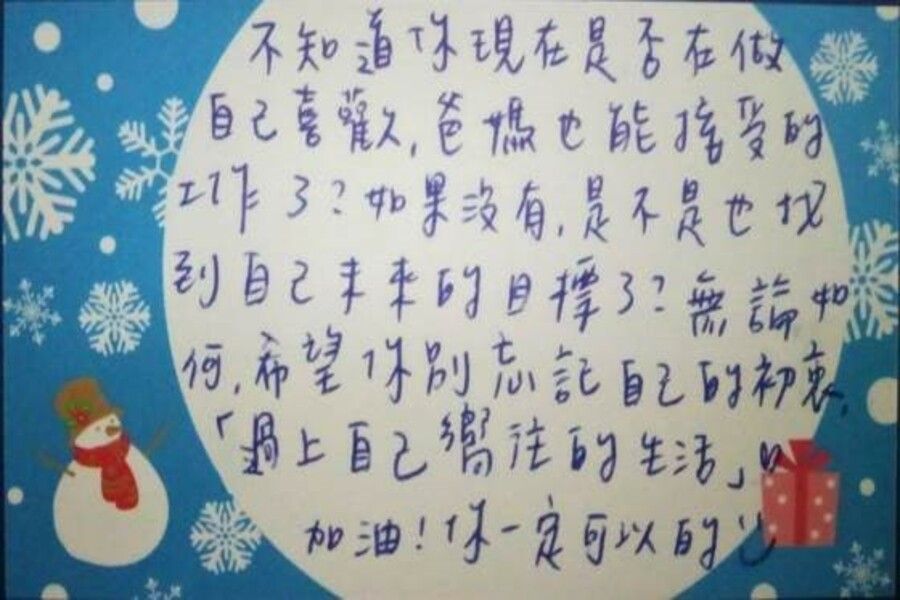 不知道你現在是否在做
自己喜歡,爸媽也能接受的
工作了?如果沒有,是不是也找
到自己未來的目標了?無論如
何,希望你別忘記自己的初衷,
「過上自己嚮往的生活」♡
加油!你一定可以的:)